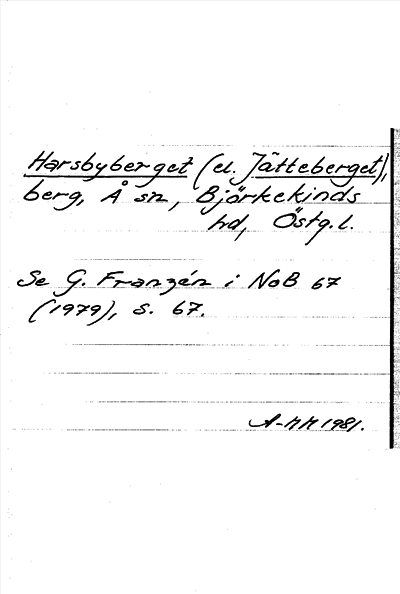 Harsbyberget (el. Jätteberget),
berg, Å sn, Björkekinds
hd, Östg.l.
Se G. Franzén i NoB 67
(1979), s. 67.
A-MM 1981.